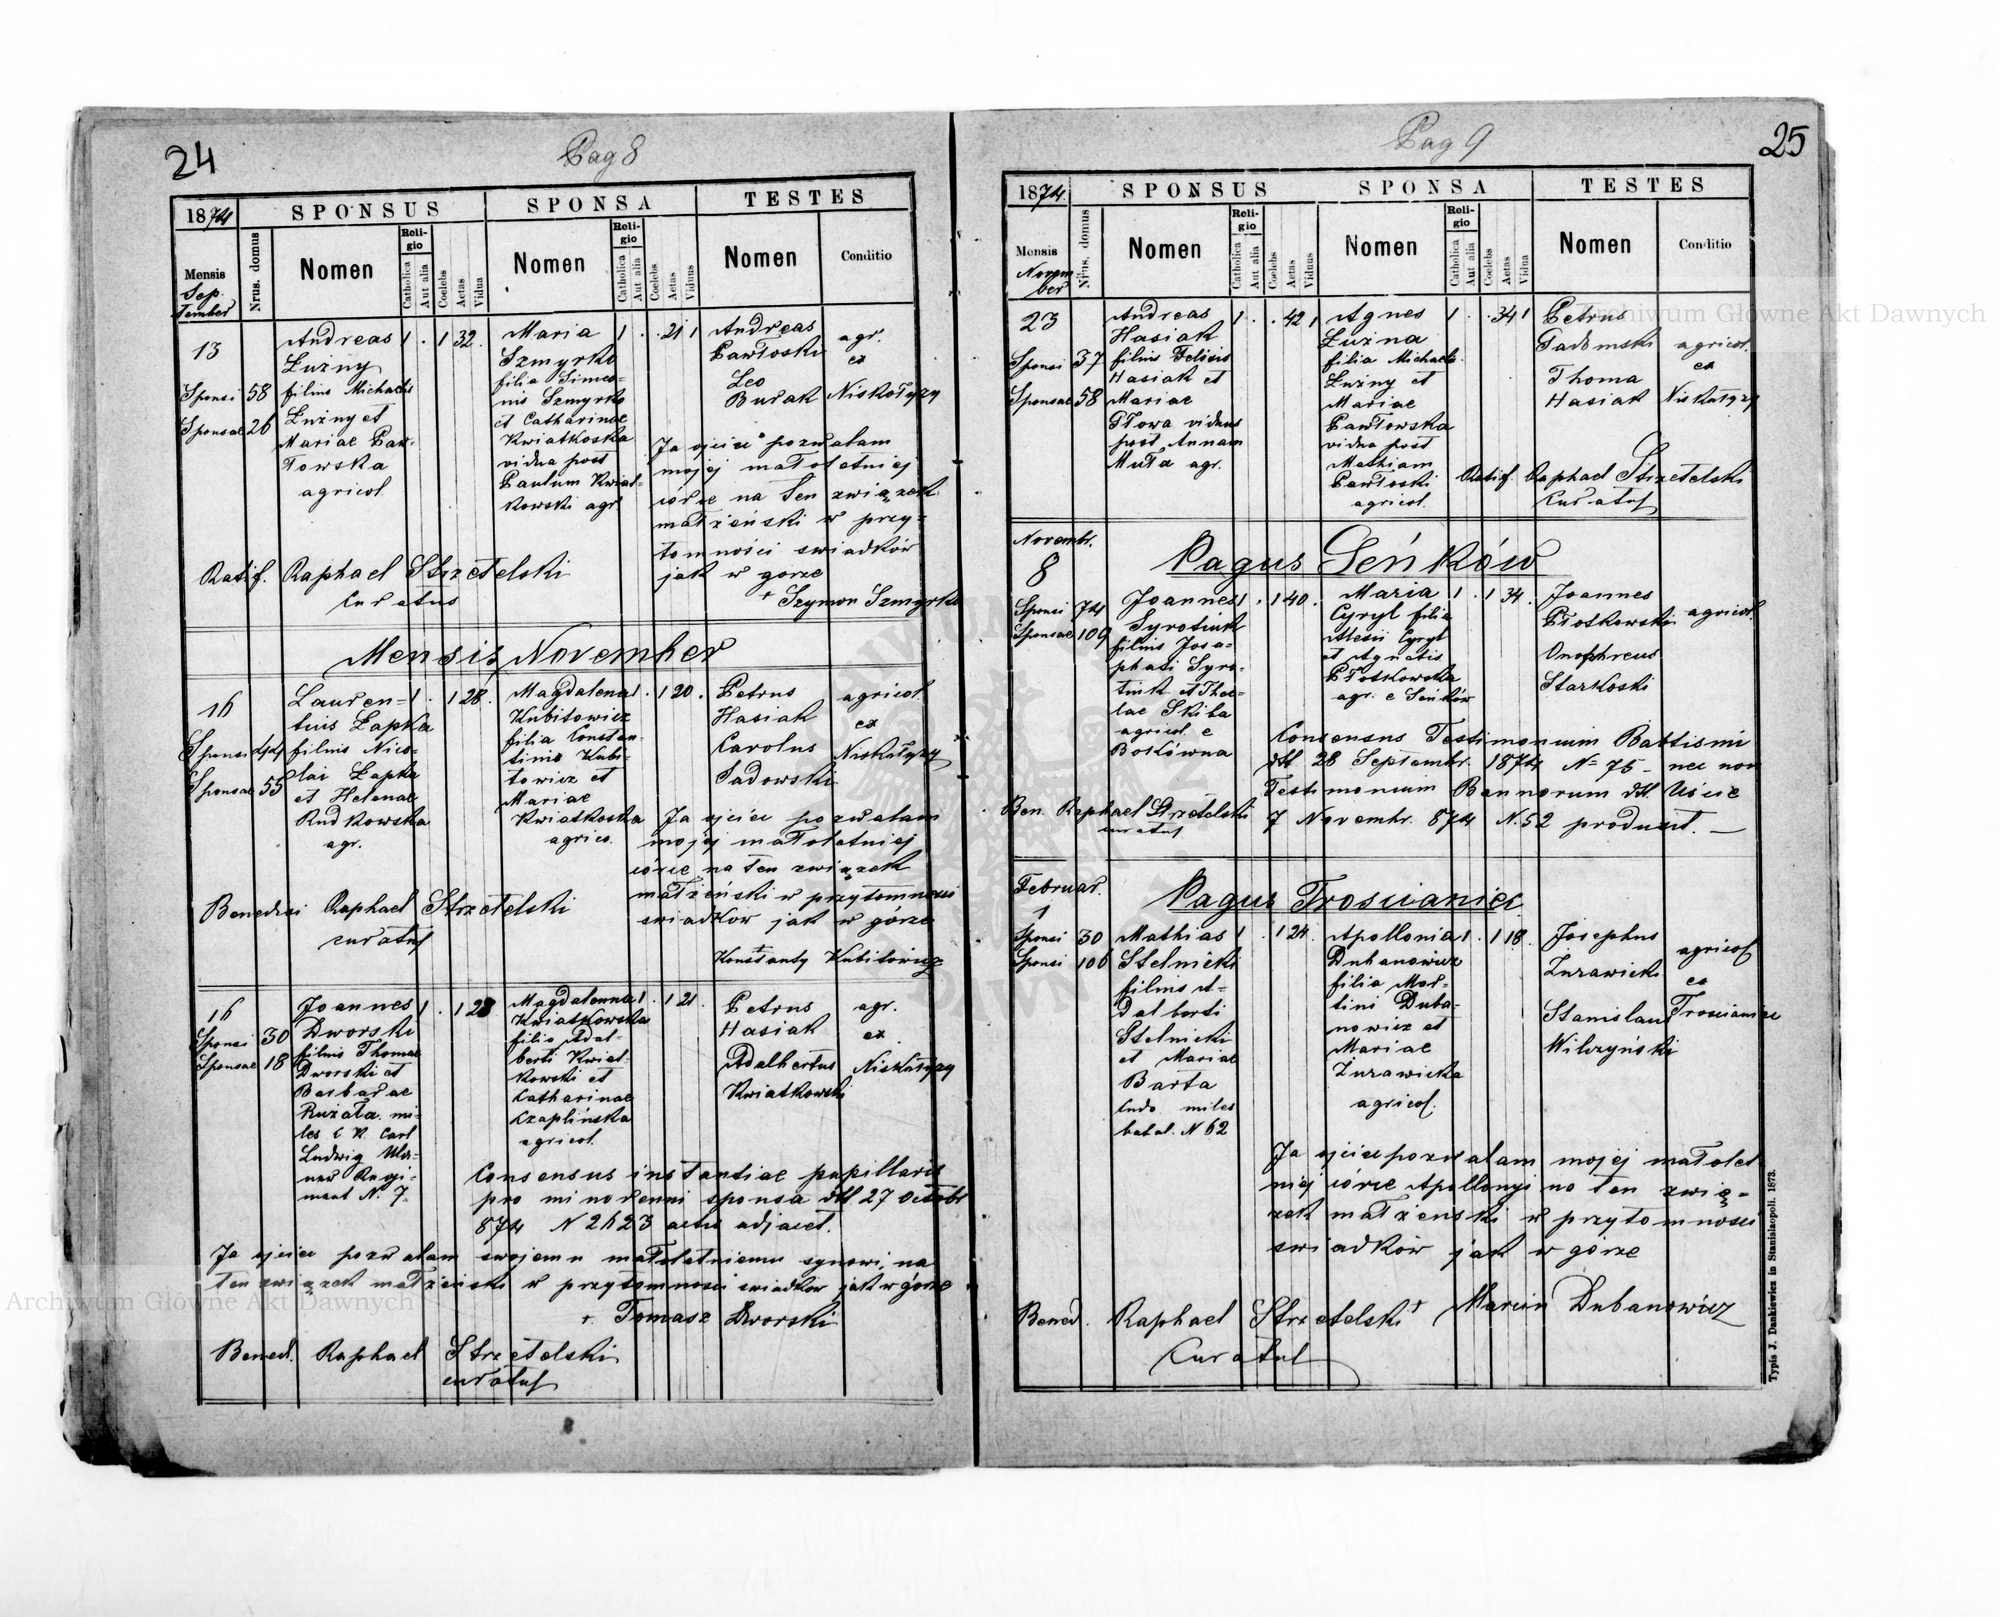 24
Pag 8
1874
SPONSUS
SPONSA
TESTES
Mensis
September
Nrus. domus
Nomen
Religio
Catholica
Aut alia
Coelebs
Aetas
Vidua
Nomen
Religio
Catholica
Aut alia
Coelebs
Aetas
Viduus
Nomen
Conditio
13
Sponsi 58
Sponsae 26
Andreas
Łużny
filius Michaelis
Łużny et
Mariae Paw-
łowska
agricol
1 . 1 32 .
Maria
Szmyrko
filia Simeo-
nis Szmyrko
et Catharinae
Kwiatkoska
vidua post
Paulum Kwiat-
kowski agr.
1 . . 21 1
Andreas
Pawłoski
Leo
Burak
agr.
ex
Niskołyzy
Ja ojciec pozwalam
mojej małoletniej
córce na ten związek
małżeński w przy-
tomności swiadków
jak w gorze
+ Szymon Szmyrko
Ratif. Raphael Strzetelski
Curatus
Mensis November
16
Sponsi 44
Sponsae 55
Lauren-
tius Łapka
filius Nico-
lai Łapka
et Helenae
Rudkowska
agr.
1 . 1 28 .
Magdalena
Kubitowicz
filia Constan-
tinis Kubi-
towicz et
Mariae
Kwiatkoska
agrico.
1 . 1 20 .
Petrus
Hasiak
Carolus
Sadowski
agricol
ex
Niskołyzy
Ja ojciec pozwalam
mojéj małoletniej
córce na ten związek
małżeński w przytomnosci
swiadków jak w górze
+
Konstanty Kubitowicz
Benedixi Raphael Strzetelski
curatus
16
Sponsi 30
Sponsae 18
Joannes
Dworski
filius Thomae
Dworski et
Barbarae
Ruzała. mi-
les C K. Carl
Ludwig Uhla-
ner Regi-
ment N. 7.
1 . 1 23
Magdalenna
Kwiatkowska
filia Adal-
berti Kwiat-
kowski et
Catharinae
Czaplińska
agricol.
1 . 1 21 .
Petrus
Hasiak
Adalbertus
Kwiatkowski
agr.
ex
Niskołyzy
Consensus instantiae pupillaris
pro minorenni sponsa dtt 27 Octobr
874 N 2623 actis adjacet.
Ja ojciec pozwalam swojemu małoletniemu synowi, na
ten związek małżeński w przytomnosci swiadków jak w górze
+ Tomasz Dworski
Bened. Raphael Strzetelski
curatus
Pag 9
25
1874.
SPONSUS
SPONSA
TESTES
Mensis
November
Nrus. domus
Nomen
Religio
Catholica
Aut alia
Coelebs
Aetas
Viduus
Nomen
Religio
Catholica
Aut alia
Coelebs
Aetas
Vidua
Nomen
Conditio
23
Sponsi 37
Sponsae 58
Andreas
Hasiak
filius Felicis
Hasiak et
Mariae
Głowa viduus
post Annam
Muła agr.
1 . . 42 1
Agnes
Łużna
filia Michaelis
Łużny et
Mariae
Pawłowska
vidua post
Mathiam
Pawłoski
agricol.
1 . . 34 1
Petrus
Sadowski
Thoma
Hasiak
agricol.
ex
Niskołyzy
Ratif. Raphael Strzetelski
Curatus
Novembr.
8
Pagus Seńków
Sponsi 74
Sponsae 109
Joannes
Syrotiuk
filius Josa-
phati Syro-
tiuk et Thec-
lae Skiba
agricol. e
Bołówna
1 . 1 40 .
Maria
Cyryl filia
Alexii Cyryl
et Agnetis
Płotkowska
agr. e Seńków
1 . 1 34 .
Joannes
Płotkowski
Onophreus
Starkoski
agricol.
Consensus Testimonium Babtismi
dtt 28 Septembr. 1874 N= 75 - nec non
Testimonium Bannorum dtt Uście
7 Novembr. 874 N. 52 produxit. —
Ben. Raphael Strzetelski
curatus
Februar.
1
Pagus Troscianiec
Sponsi 30
Sponsi 106
Mathias
Stelnicki
filius A-
dalberti
Stelnicki
et Mariae
Barta
Cndo. miles
batal. N 62
1 . 1 24 .
Apollonia
Dubanowicz
filia Mar-
tini Duba-
nowicz et
Mariae
Żurawicka
agricol.
1 . 1 18 .
Josephus
Zurawicki
Stanislaus
Wilczyński
agricol
ex
Troscianiec
Ja ojciec pozwalam mojej małolet
niej córce Apollonyi na ten zwią-
zek małżenski w przytomnosci
swiadków jak w górze
Bened. Raphael Strzetelski + Marcin Dubanowicz
Curatus
Typis J. Dankiewicz in Stanislaopoli. 1873.
Archiwum Główne Akt Dawnych
Archiwum Główne Akt Dawnych